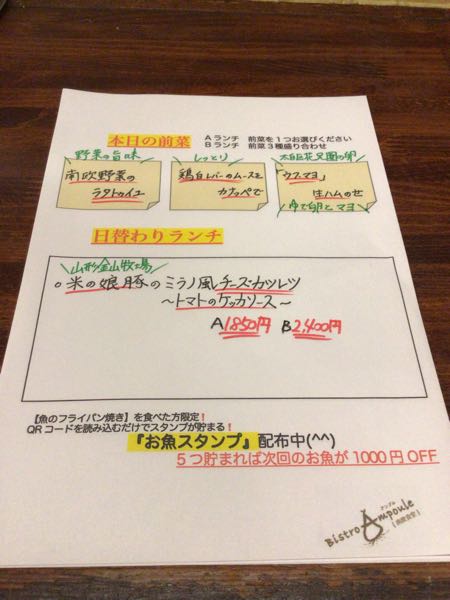 本日の前菜
Aランチ 前菜を1つお選びください
Bランチ 前菜3種盛り合わせ
野菜の旨味
南欧野菜の
ラタトゥイユ
しっとり
鶏白レバーのムースを
カナッペで
花兄園の卵
「ウフマヨ」
生ハムのせ
ゆで卵とマヨ
日替わりランチ
山形金山牧場
○米の娘豚のミラノ風チーズカツレツ
～トマトのケッカソース～
A 1850円 B 2,400円
【魚のフライパン焼き】を食べた方限定！
QRコードを読み込むだけでスタンプが貯まる！
『お魚スタンプ』配布中(^^)
5つ貯まれば次回のお魚が1000円OFF
アンプル
Bistro Ampoule